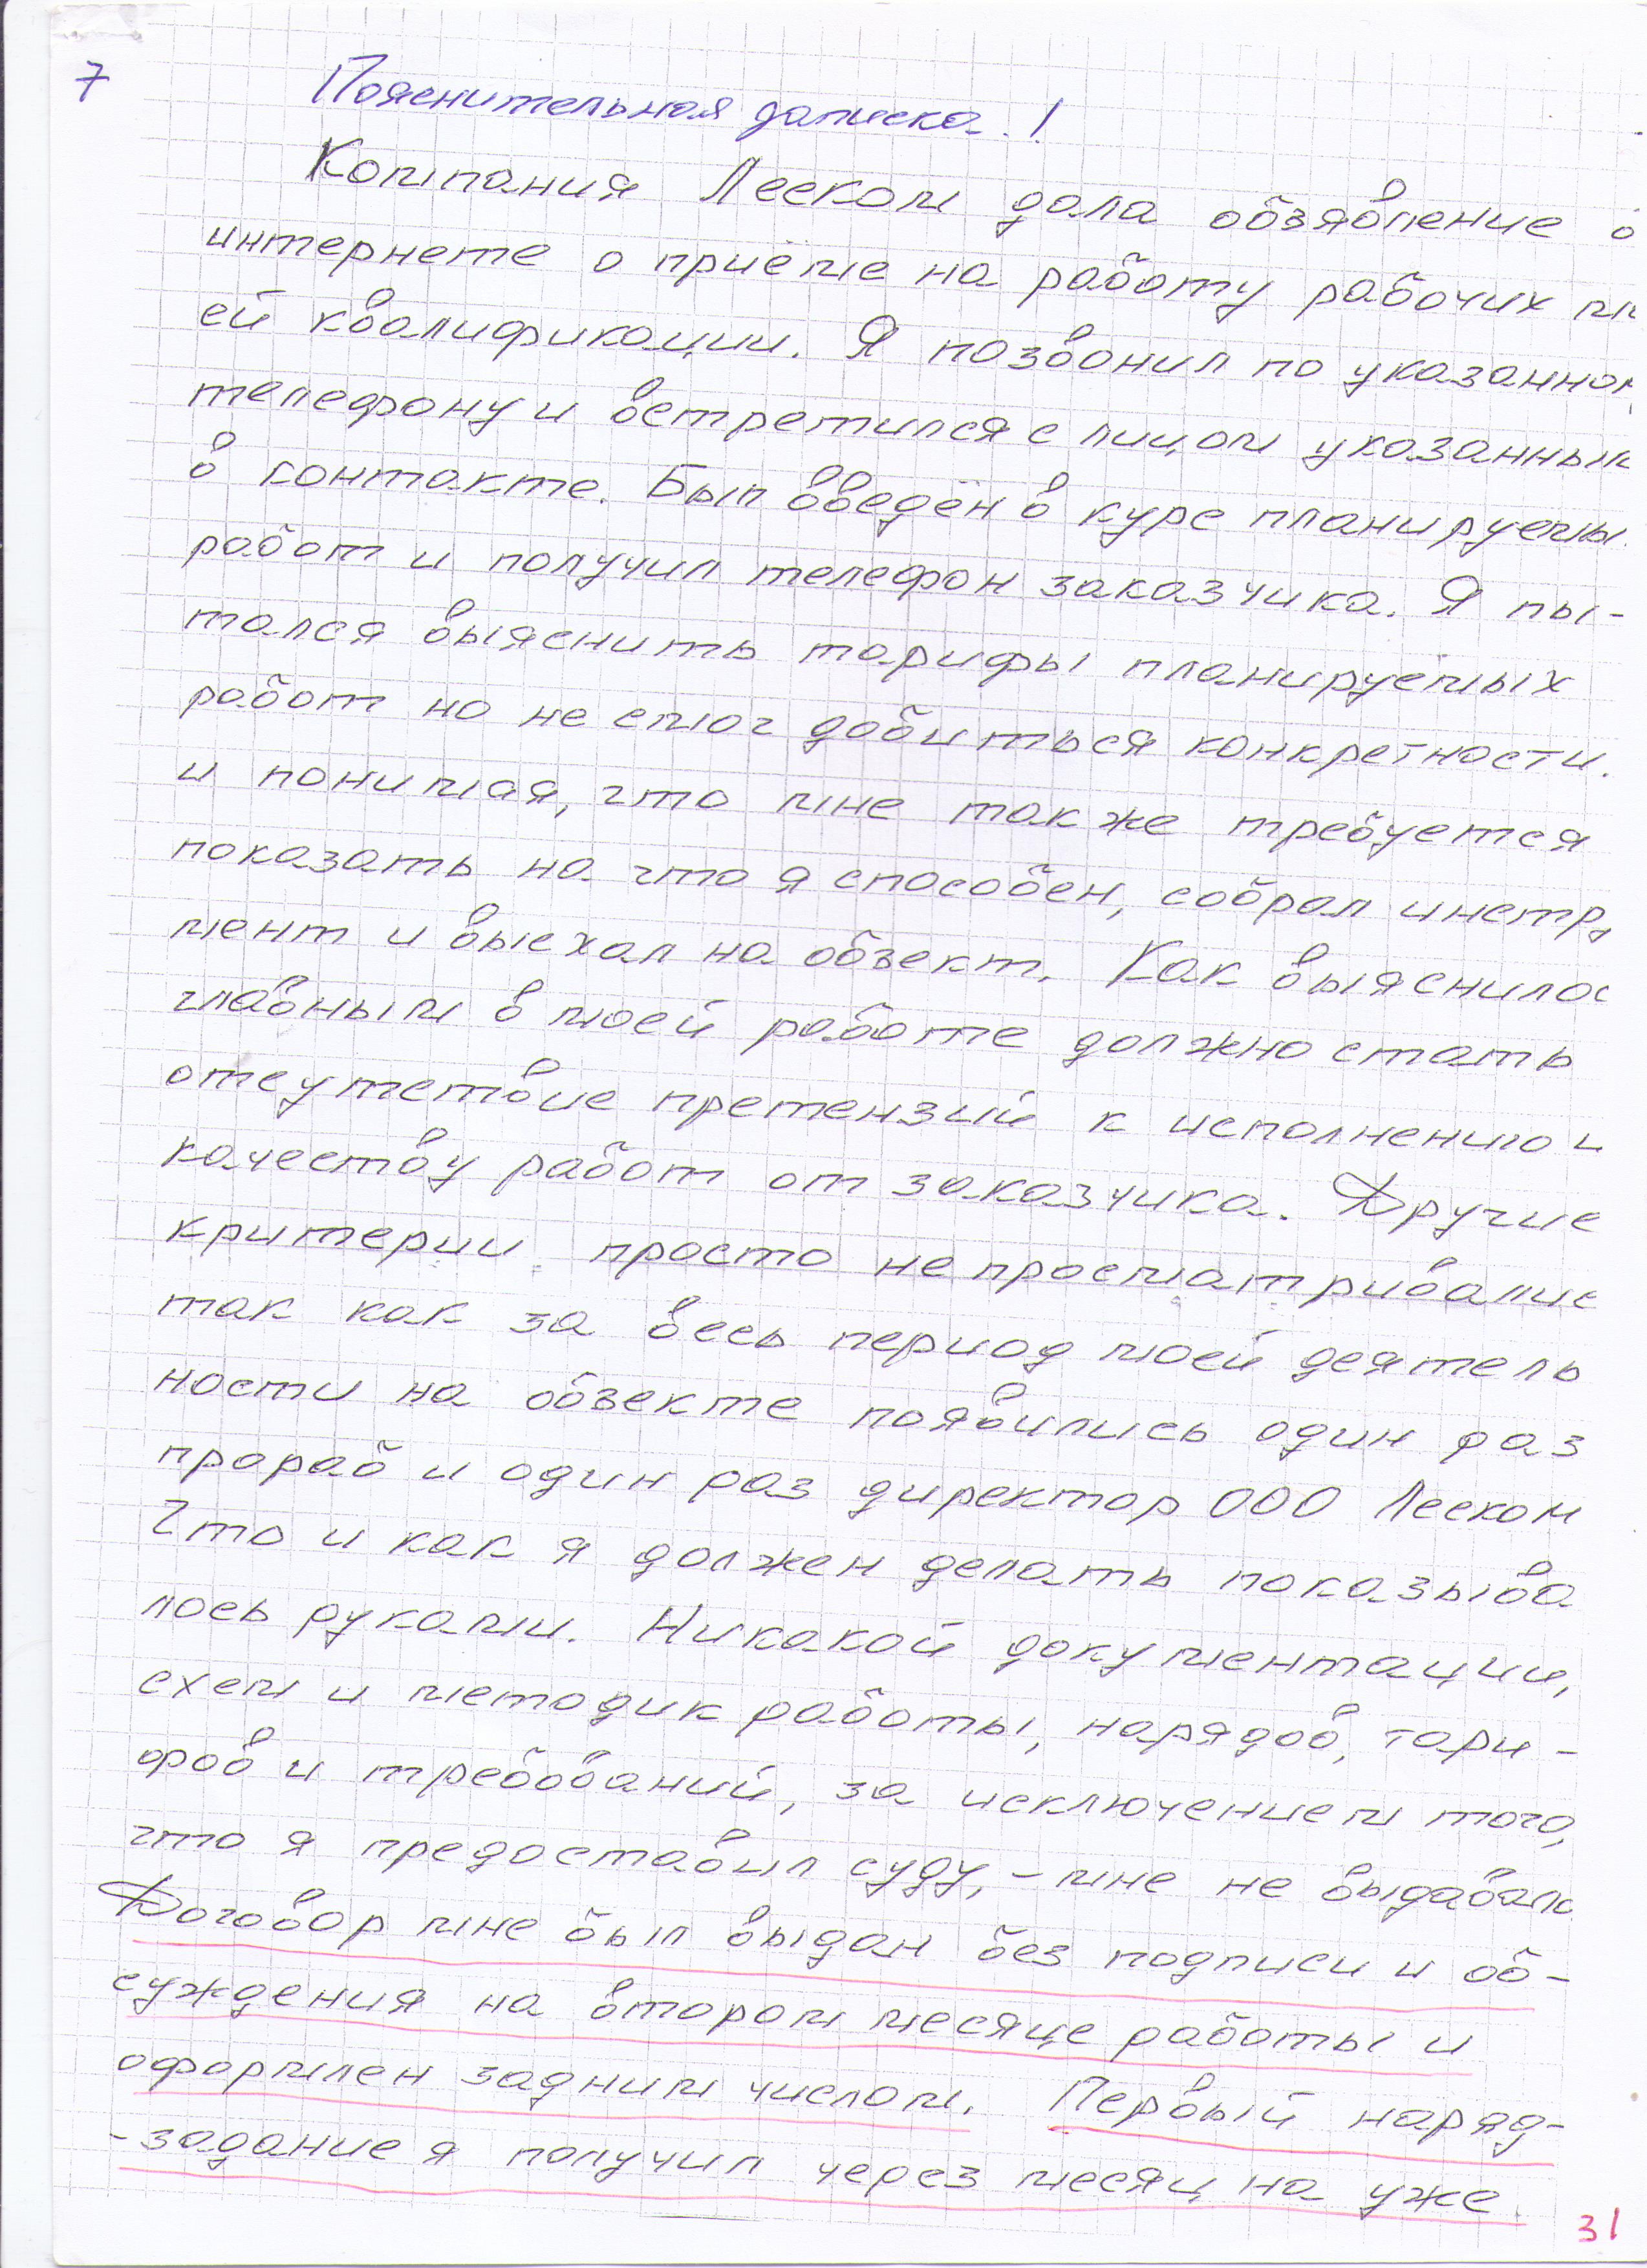 7
Пояснительная записка!
Компания Лееком дала обзявление в
интернете о приёме на работу рабочих
ей квалификации. Я позвонил по указанном
телефону и встретился с лицом указанным
в контакте. Был введён в курс планируемы
работ и получил телефон заказчика. Я пы-
тался выяснить тарифы планируемых
работ но не смог добиться конкретности.
и понимая, что мне так же требуется
показать на что я способен, собрал инстру
мент и выехал на обзект. Как выяснилос
главным в моей работе должно стать
отсутствие претензий к исполнению и
качеству работ от заказчика. Другие
критерии просто не просматривалис
так как за весь период моей деятель
ности на обзекте появились один раз
прораб и один раз директор ООО Лееком
Что и как я должен делать показыва
лось руками. Никакой документации,
схем и методик работы, нарядов, тари-
фов и требований, за исключением того,
что я предоставил суду, - мне не выдавали
Договор мне был выдан без подписи и об-
суждения на втором месяце работы и
оформлен задним числом. Первый наряд-
-задание я получил через месяц на уже
31